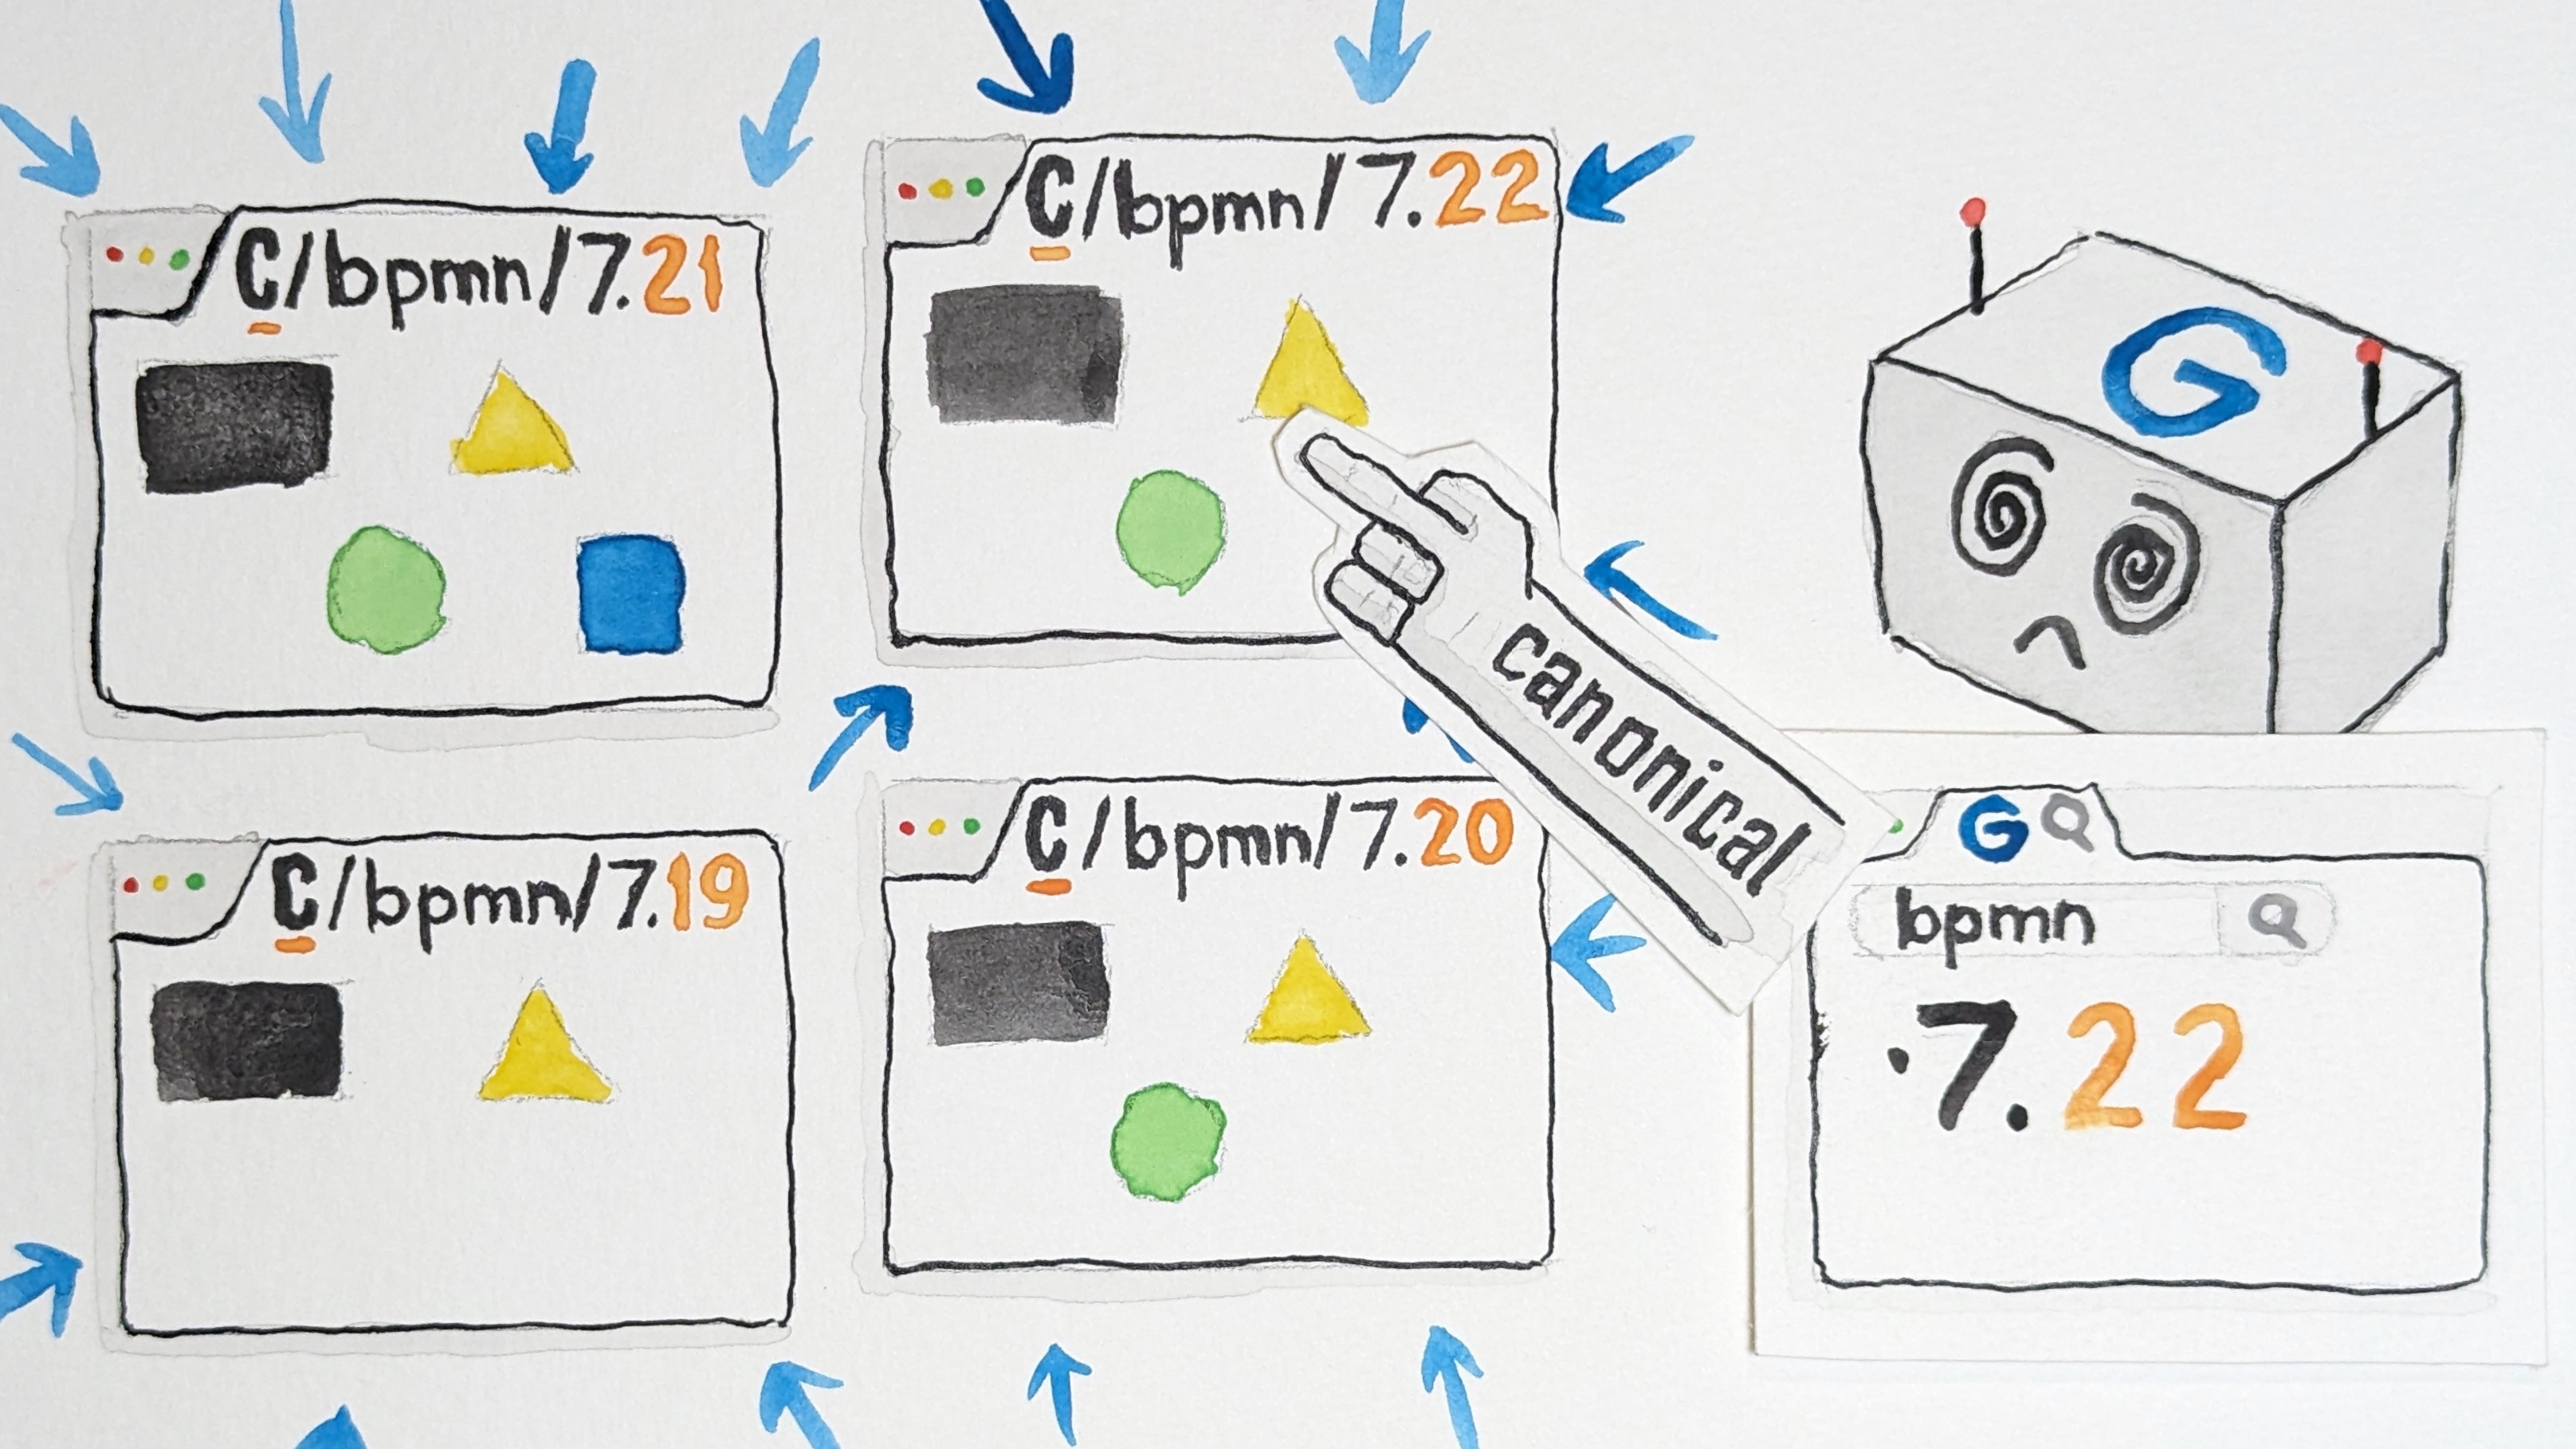 C/bpmn/7.21
C/bpmn/7.22
G
canonical
C/bpmn/7.19
C/bpmn/7.20
G
bpmn
·7.22